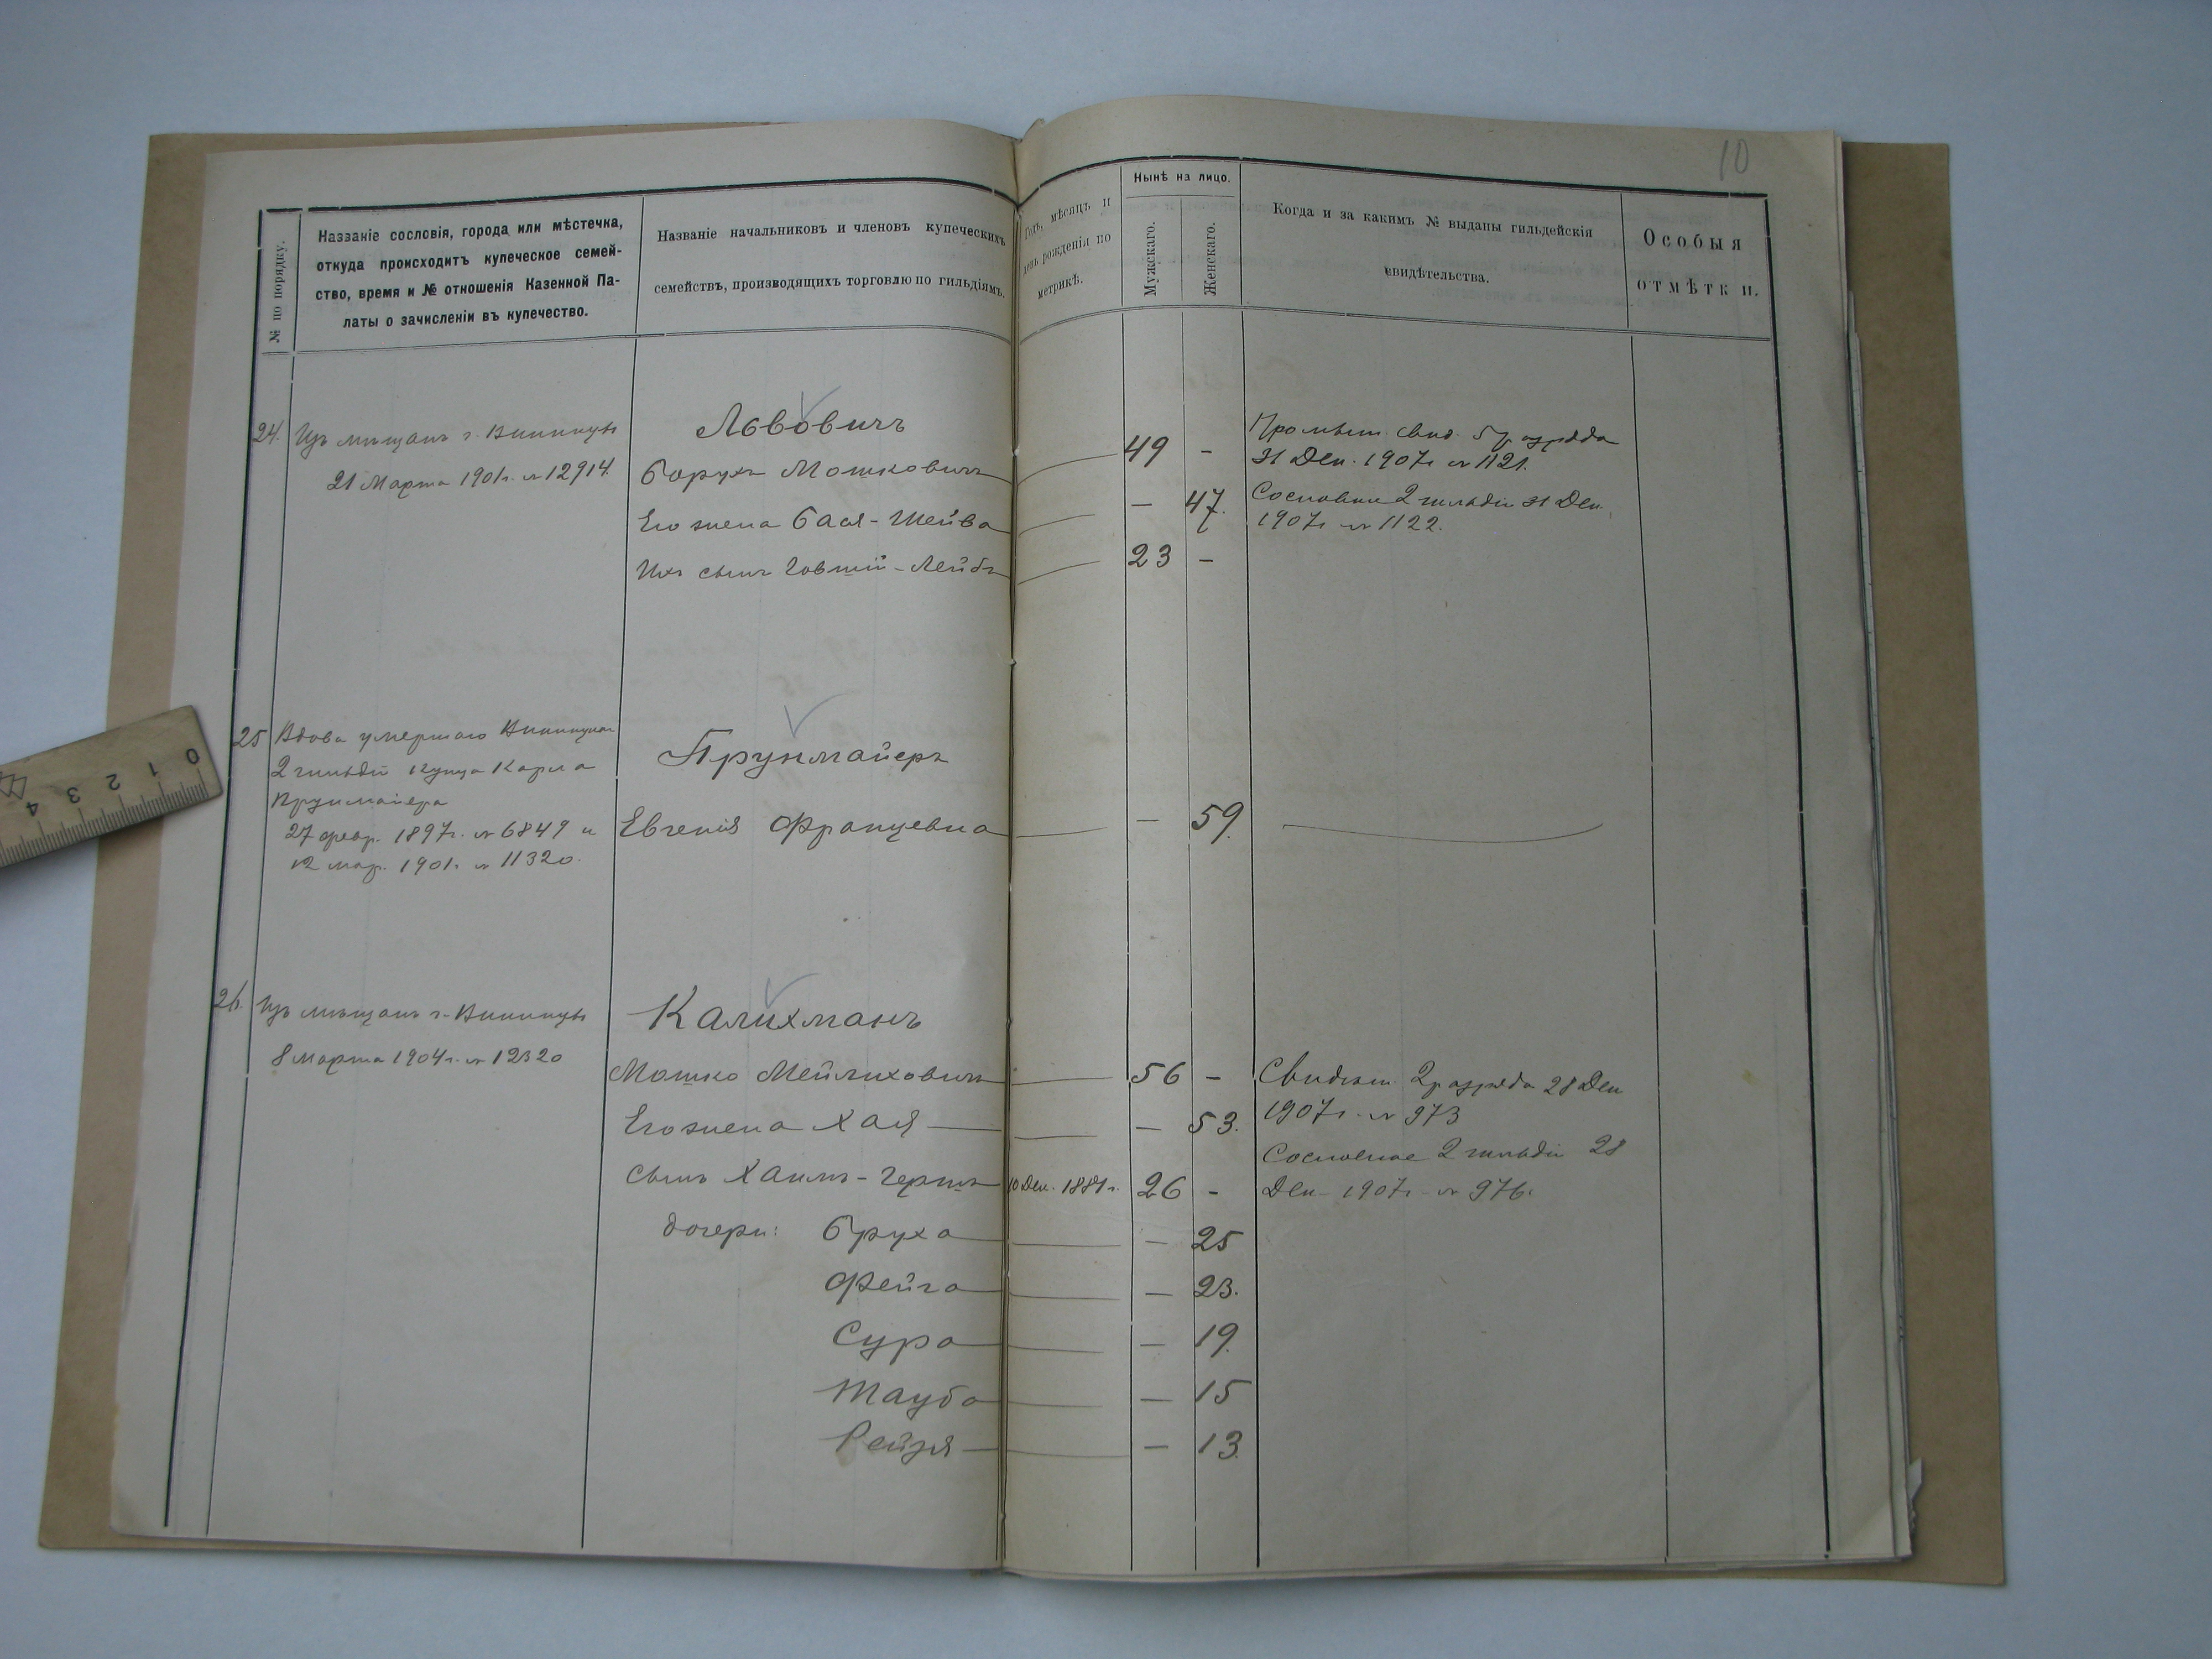 10
№ по порядку.
Названіе сословія, города или мѣстечка,
откуда происходитъ купеческое семей-
ство, время и № отношенія Казенной Па-
латы о зачисленіи въ купечество.
Названіе начальниковъ и членовъ купеческихъ
семействъ, производящихъ торговлю по гильдіямъ.
Годъ, мѣсяцъ и
день рожденія по
метрикѣ.
Нынѣ на лицо.
Мужскаго.
Женскаго.
Когда и за какимъ № выданы гильдейскія
свидѣтельства.
Особыя
отмѣтки.
24. Изъ мѣщанъ г. Винницы
21 Марта 1901г. № 12914.
Львовичъ
Борухъ Мошковичъ 49 -
Его жена Бася-Шейва — 47.
Ихъ сынъ Говшій-Лейбъ 23 -
Промысл. свид. 5 разряда
31 Дек. 1907г № 1121.
Сословное 2 гильдіи 31 Дек.
1907г № 1122.
25 Вдова умершаго Винницкаго
2 гильдіи купца Карла
Прунмайера
27 февр. 1897г. № 6849 и
12 мар. 1901г. № 11320.
Прунмайеръ
Евгенія Францевна — 59.
26. Изъ мѣщанъ г. Винницы
8 марта 1904г. № 12320
Калихманъ
Мошко Мейлиховичъ 56 -
Его жена Хая — 53.
Сынъ Хаимъ-Гершъ 10 Дек. 1881г. 26 -
дочери: Бруха — 25
Фейга — 23.
Сура — 19.
Тауба — 15
Рейзя — 13.
Свидѣт. 2 разряда 28 Дек
1907г. № 973
Сословное 2 гильдіи 28
Дек 1907г. № 976.
0 1 2 3 4